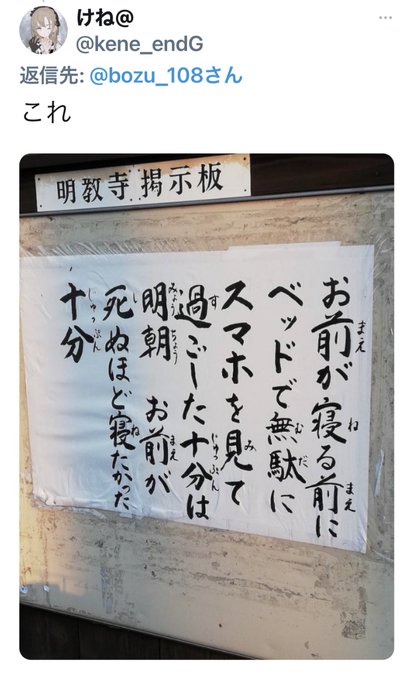 けね@
@kene_endG
返信先: @bozu_108さん
これ
明教寺 掲示板
お前が寝る前に
ベッドで無駄に
スマホを見て
過ごした十分は
明朝 お前が
死ぬほど寝たかった
十分